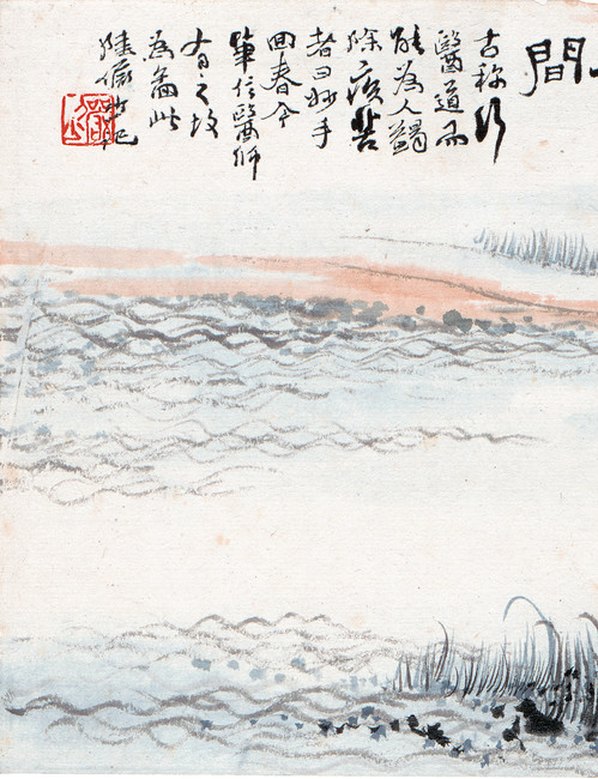 間
古稱行
醫道而
能為人蠲
除疾苦
者曰妙手
回春今
信醫師
有之故
為畫此
陸儼少記